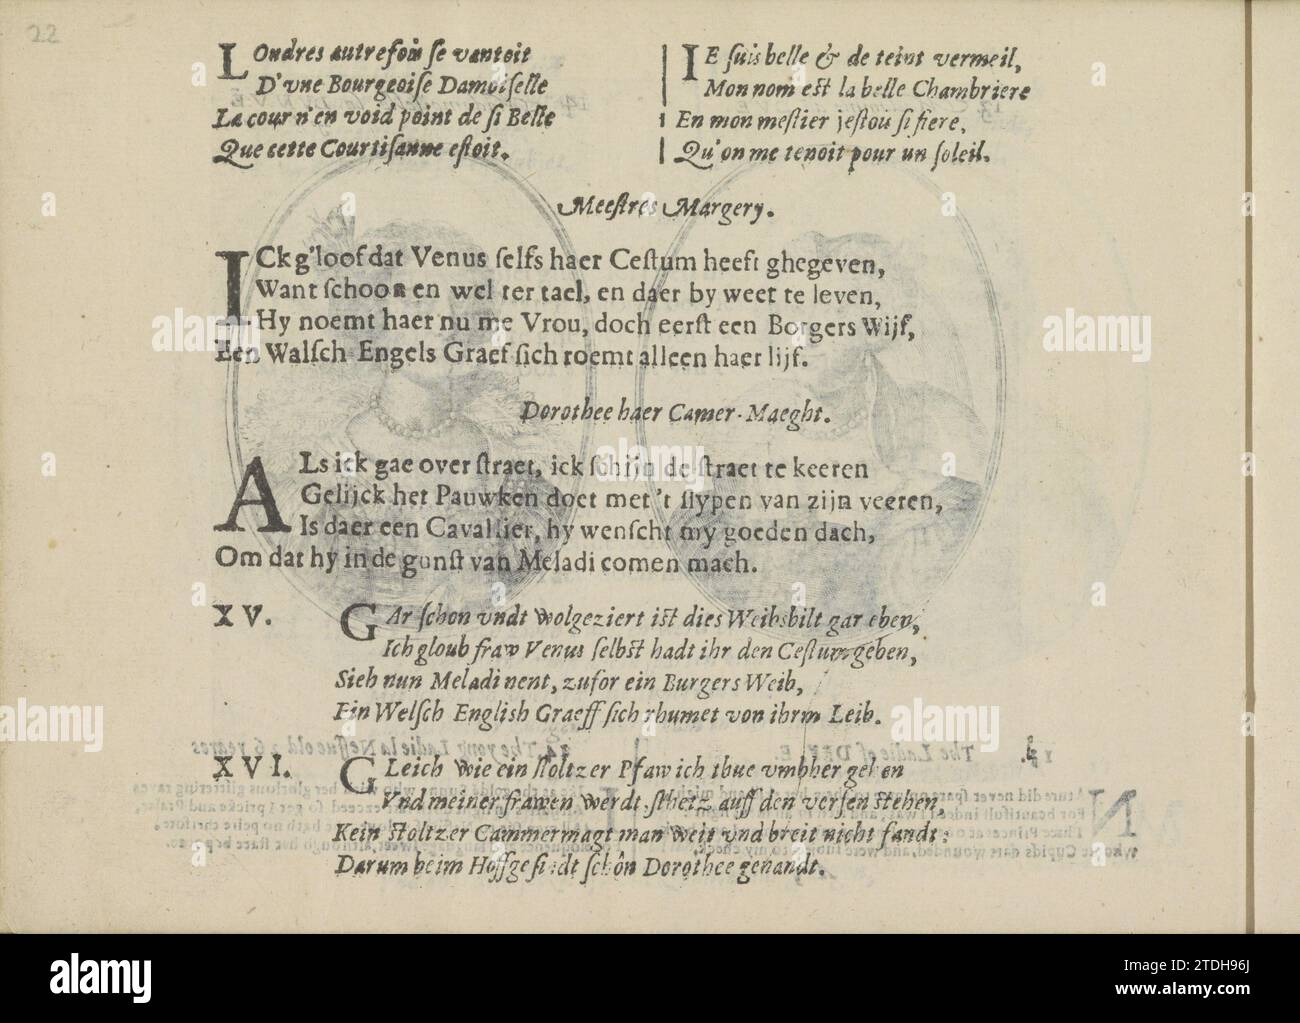 22
LOndres autrefois se vantoit
D'vne Bourgeoise Damoiselle
La cour n'en void point de si Belle
Que cette Courtisanne estoit.
IE suis belle & de teint vermeil,
Mon nom est la belle Chambriere
En mon mestier jestois si fiere,
Qu'on me tenoit pour un soleil.
Meestres Margery.
ICk g'loof dat Venus selfs haer Cestum heeft ghegeven,
Want schoon en wel ter tael, en daer by weet te leven,
Hy noemt haer nu me Vrou, doch eerst een Borgers Wijf,
Een Walsch Engels Graef sich roemt alleen haer lijf.
Dorothee haer Camer-Maeght.
ALs ick gae over straet, ick schijn de straet te keeren
Gelijck het Pauwken doet met 't slypen van zijn veeren,
Is daer een Cavallier, hy wenscht my goeden dach,
Om dat hy in de gunst van Meladi comen mach.
XV. GAr schon vndt wolgeziert ist dies Weibsbilt gar eben,
Ich gloub fraw Venus selbst hadt ihr den Cestum geben,
Sieh nun Meladi nent, zufor ein Burgers Weib,
Ein Welsch English Graeff sich rhumet von ihrm Leib.
XVI. GLeich wie ein stoltzer Pfaw ich thue vmbher gehen
Vnd meiner frawen werdt sthetz auff den versen stehen,
Kein stoltzer Cammermagt man weit vnd breit nicht fandt:
Darum beim Hoffgesindt schôn Dorothee genandt.
The yong Ladie la Nessue old 26 yeares
The Ladie of
alamy
Image ID: 2TDH96J
www.alamy.com